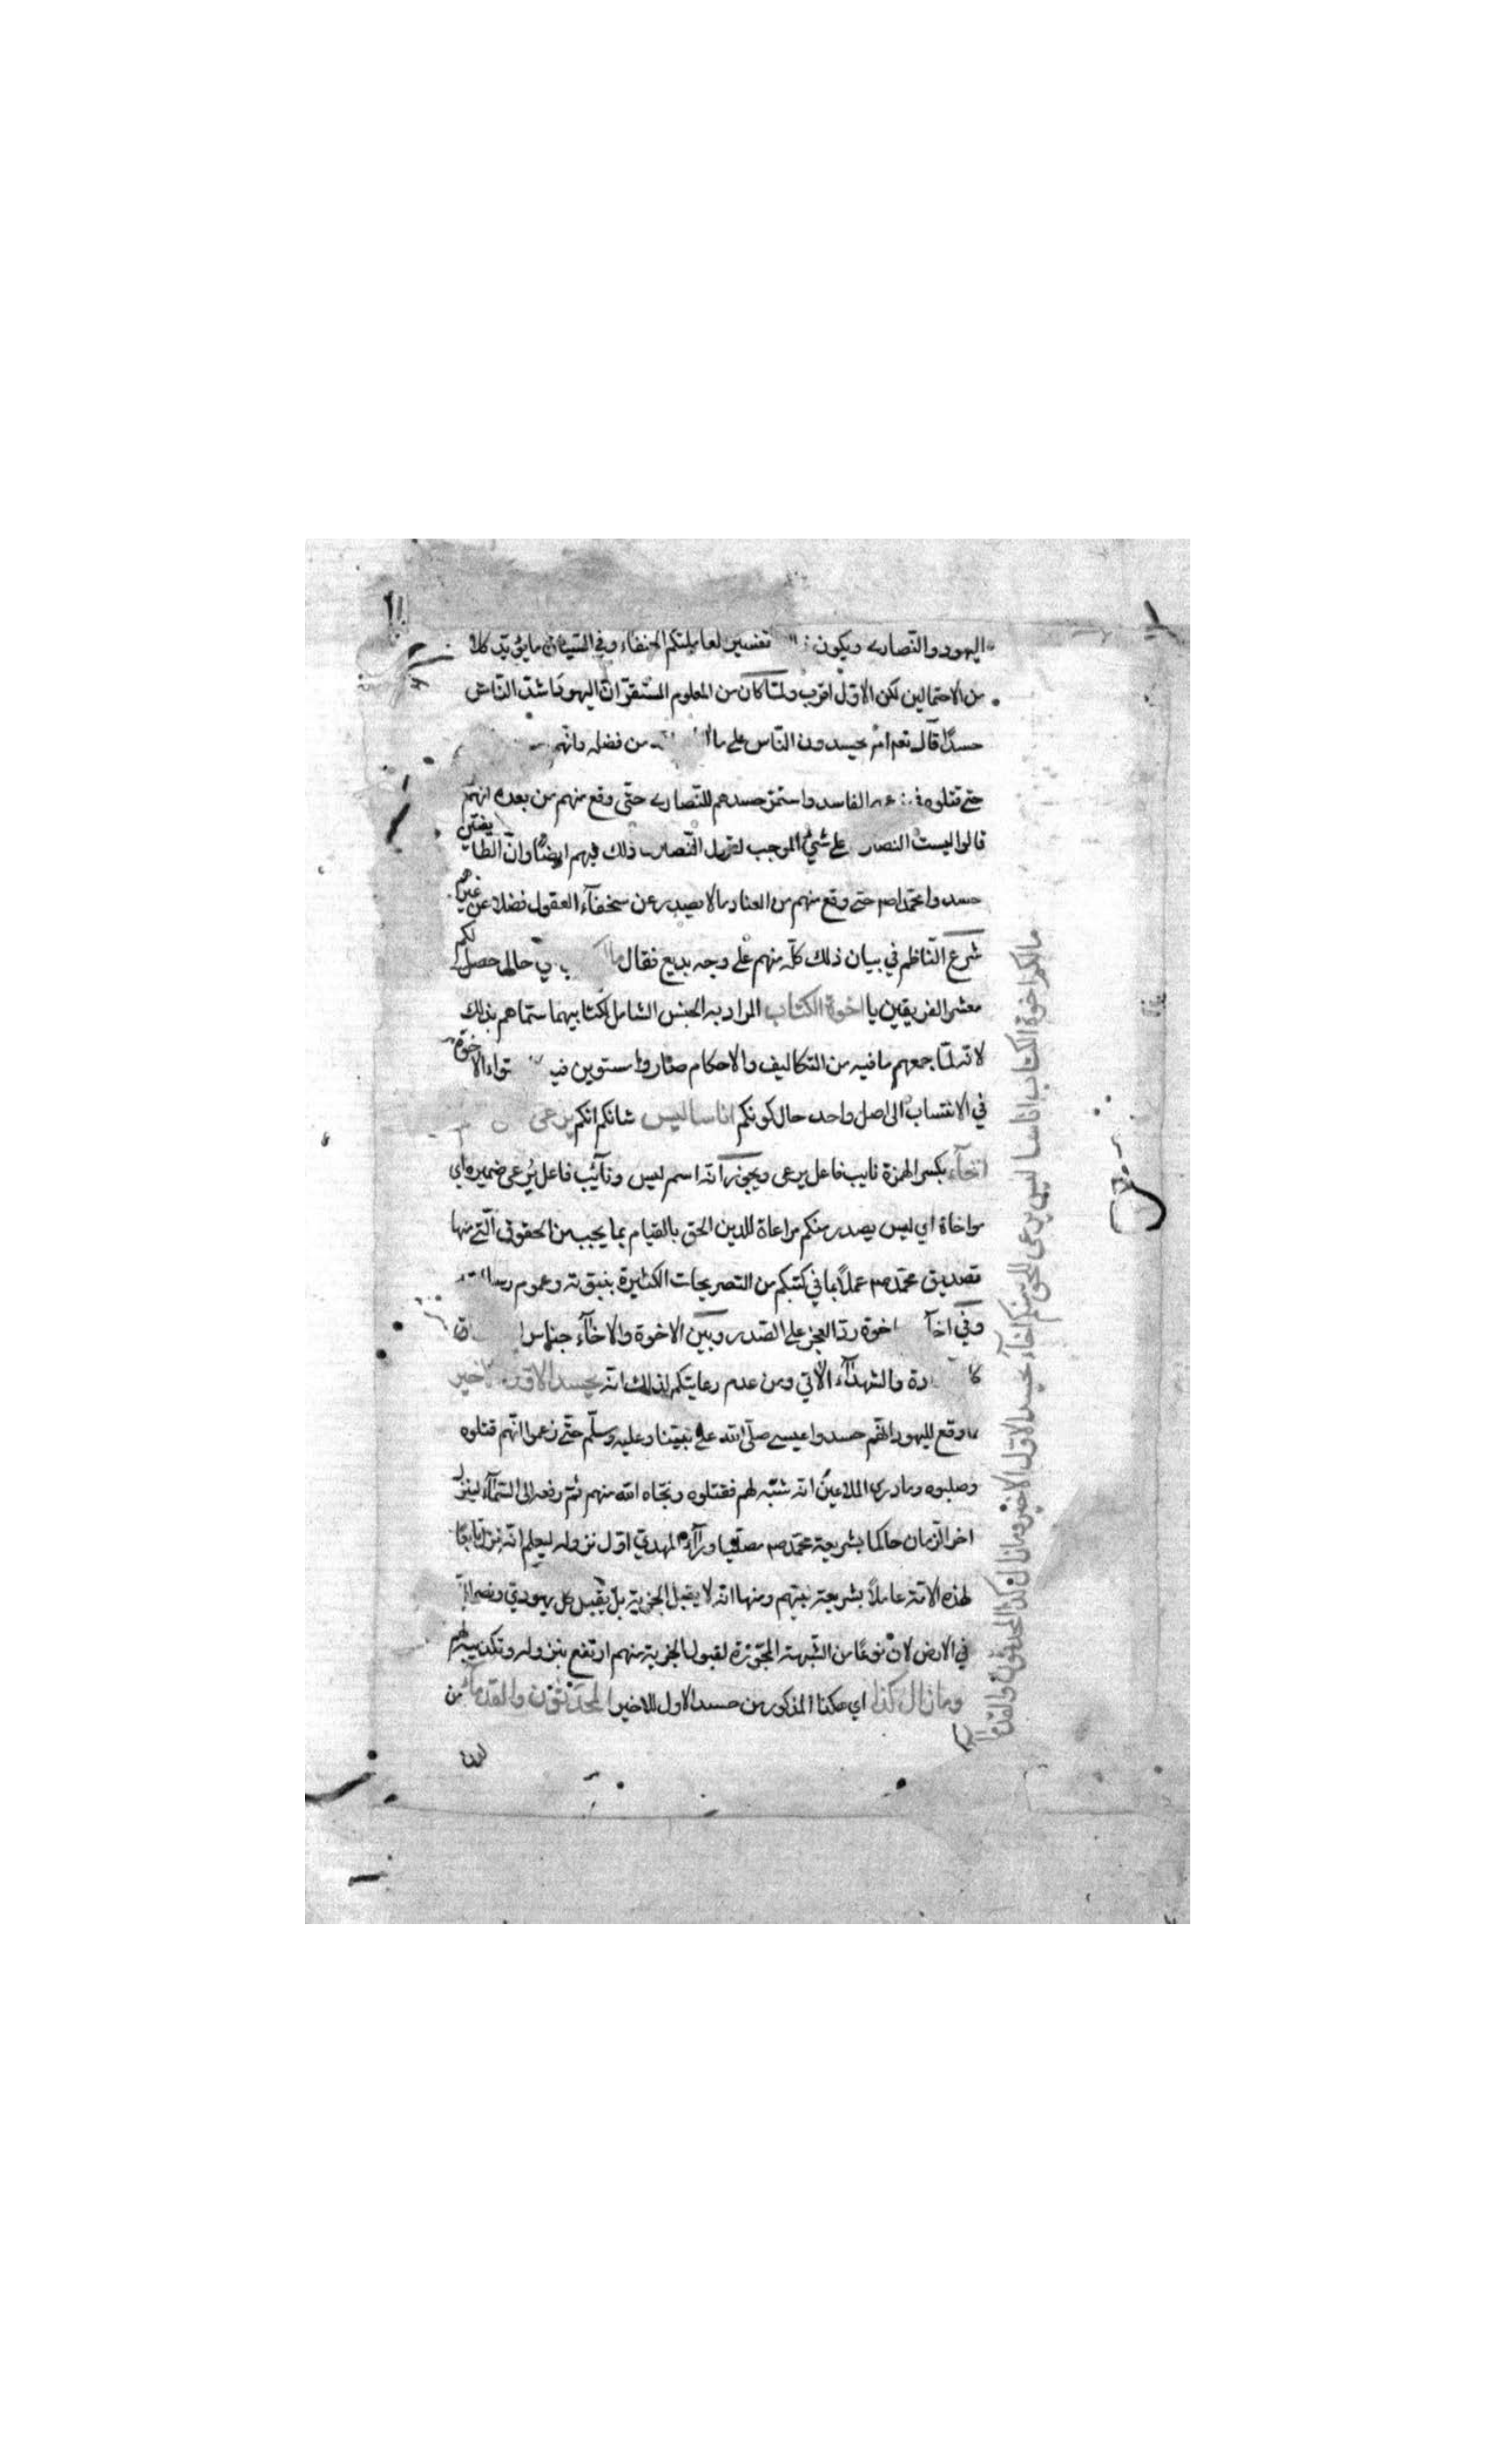 اليهود والنصارى ويكون تفسير لعاملتكم الحنفاء وفي السياق ما يؤيد كلا
من الاحتمالين لكن الاول اقرب ولما كان من المعلوم المستقر ان اليهود اشد الناس
حسدًا قال تعم ام يحسدون الناس على ما من فضله وانهم
حتى قتلوه في الفاسد واستمر حسدهم للنصارى حتى وقع منهم من بعده انهم
قالوا ليست النصارى على شئ الموجب لقول النصارى ذلك فيهم ايضًا وان الطايفتين
حسدوا محمدا صم حتى وقع منهم من العناد ما لا يصدر عن سخفآء العقول فضلا عن غيرهم
شرع الناظم في بيان ذلك كله منهم على وجه بديع فقال ما اي حال حصل لكم
معشر الفريقين يا اخوة الكتاب المراد به الجنس الشامل لكتابيهما سماهم بذلك
لانه لما جمعهم ما فيه من التكاليف والاحكام صاروا مستوين فيه الاخوة
في الانتساب الى اصل واحد حال كونكم اناسا ليس شانكم انكم يرعى
اخآء بكسر الهمزة نايب فاعل يرعى ويجوز انه اسم ليس ونآئب فاعل يُرعى ضميره اي
مواخاة اي ليس يصدر منكم مراعاة للدين الحق بالقيام بما يجب من الحقوق التي منها
تصديق محمد صم عملاً بما في كتبكم من التصريحات الكثيرة بنبوته وعموم رسالته
وفي اخآ اخوة رد العجز على الصدر وبين الاخوة والاخآء جناس
والشهدآء الآتي ومن عدم رعايتكم لذلك انه يحسد الاول الاخير
ما وقع لليهود انهم حسدوا عيسى صلى الله على نبينا وعليه وسلم حتى زعموا انهم قتلوه
وصلبوه وما درى الملاعين انه شبه لهم فقتلوه ونجاه الله منهم ثم رفعه الى السمآء لينزل
اخر الزمان حاكما بشريعة محمد صم مصليا ورآء المهدي اول نزوله ليعلم انه نزل تابعًا
لهذه الامة عاملاً بشريعة نبيهم ومنها انه لا يقبل الجزية بل يقتل كل يهودي ونصراني
في الارض لان نوعًا من الشبهة المجوزة لقبول الجزية منهم ارتفع بنزوله وتكذيبه لهم
وما زال كذا اي هكذا المذكور من حسد الاول للاخير المحدثون والقدمآء من
لدن
مالكم اخوة الكتاب اناسا ليس يرعى للحق منكم اخآء يحسد الاول الاخير وما زال كذا المحدثون والقدمآ